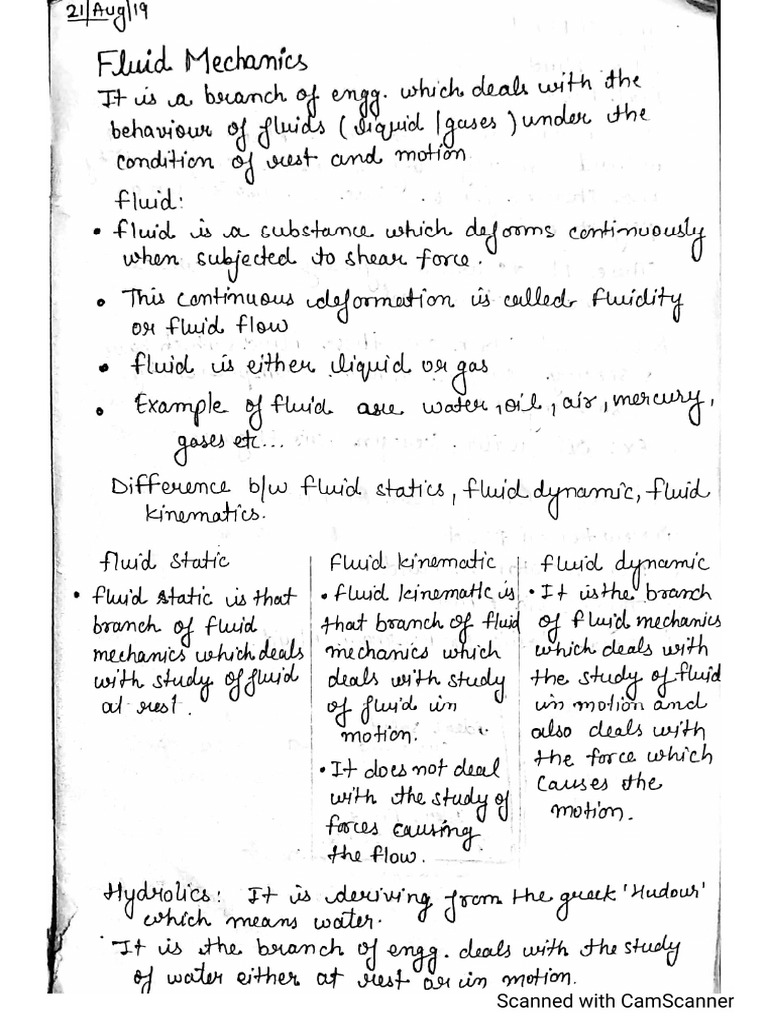 21/Aug/19
Fluid Mechanics
It is a branch of engg. which deals with the
behaviour of fluids (liquid/gases) under the
condition of rest and motion
fluid:
• fluid is a substance which deforms continuously
when subjected to shear force.
• This continuous deformation is called fluidity
or fluid flow
• fluid is either liquid or gas
• Example of fluid are water, oil, air, mercury,
gases etc...
Difference b/w fluid statics, fluid dynamic, fluid
kinematics.
fluid static
• fluid static is that
branch of fluid
mechanics which deals
with study of fluid
at rest.
Fluid kinematic
• fluid kinematic is
that branch of fluid
mechanics which
deals with study
of fluid in
motion.
• It does not deal
with the study of
forces causing
the flow.
fluid dynamic
• It is the branch
of fluid mechanics
which deals with
the study of fluid
in motion and
also deals with
the force which
causes the
motion.
Hydrolics: It is deriving from the greek 'Hudour'
which means water.
It is the branch of engg. deals with the study
of water either at rest or in motion.
Scanned with CamScanner